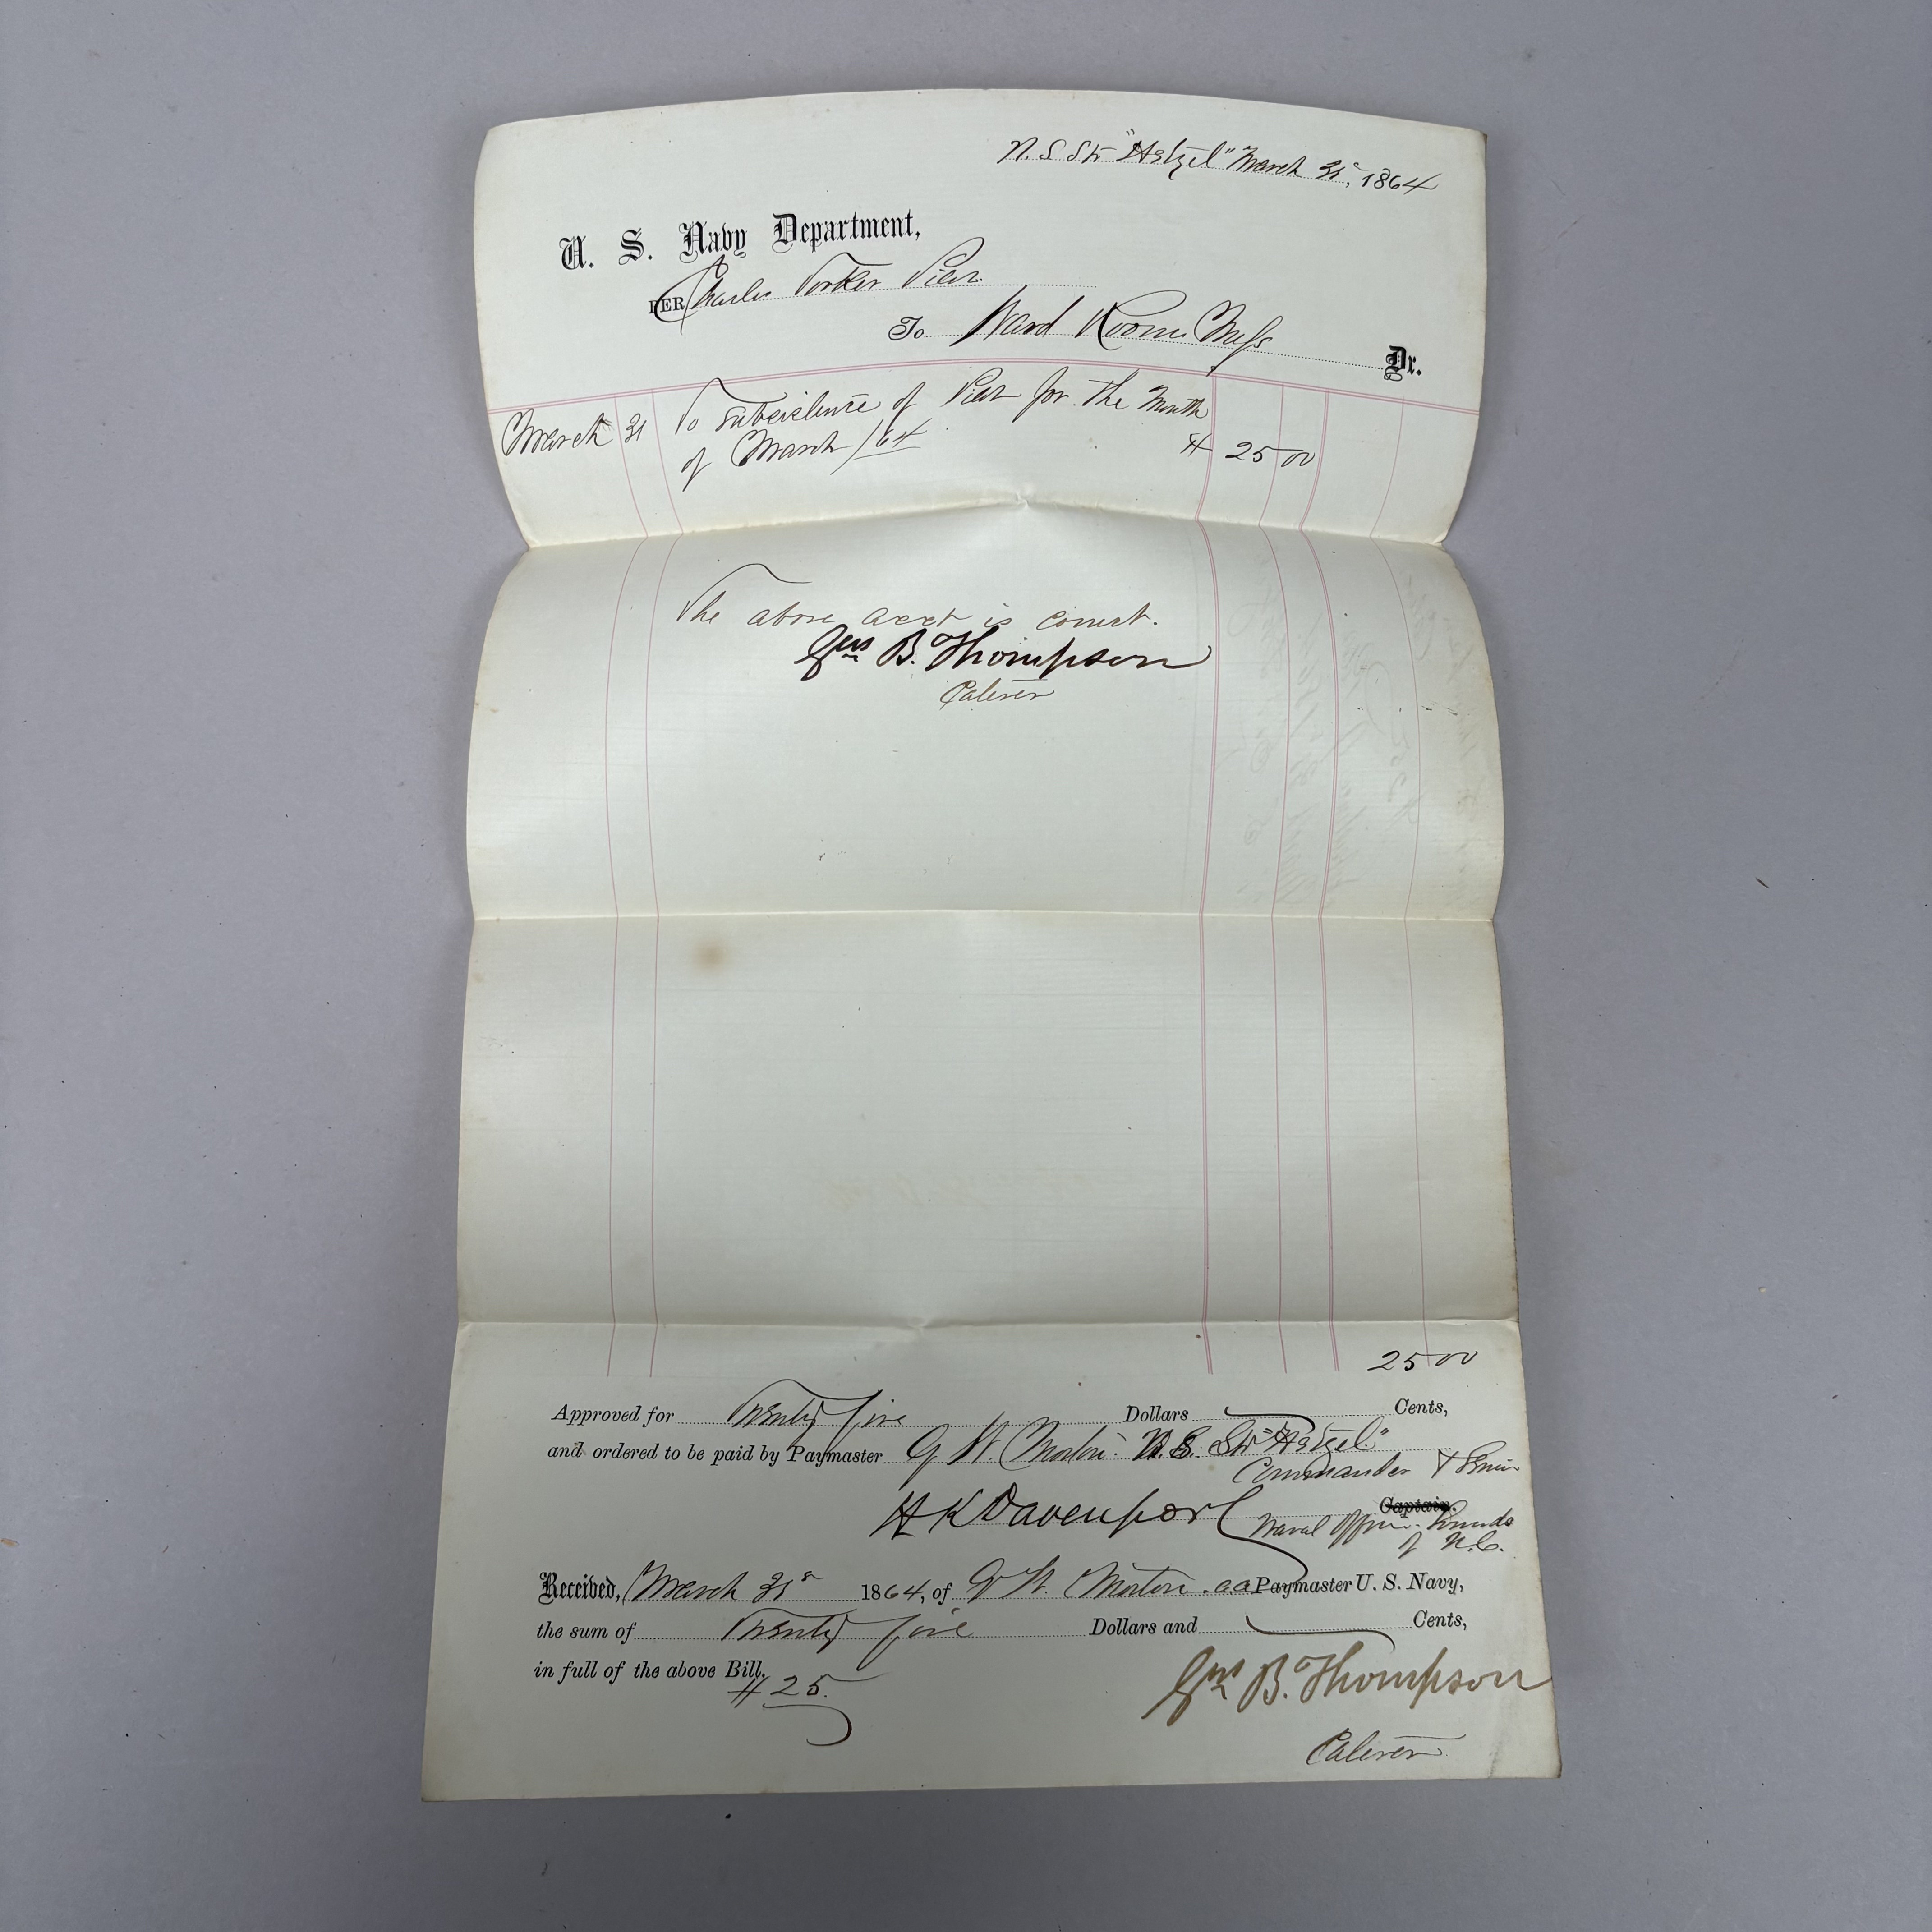 U. S. Str "Hetzel" March 31st, 1864
U. S. Navy Department,
PER Charles Pilot
To Ward Room Mess Dr.
March 31 To Subsistence of Pilot for the Month
of March /64 $ 25 00
The above acct is correct.
Gus B. Thompson
Caterer
25 00
Approved for Twenty five Dollars Cents,
and ordered to be paid by Paymaster G W. Morton U. S. Str "Hetzel"
Commander & Senior
H K Davenport Captain.
Naval Officer Sounds
of N.C.
Received, March 31st 1864, of G W. Morton a a Paymaster U. S. Navy,
the sum of Twenty five Dollars and Cents,
in full of the above Bill.
$ 25.
Gus B. Thompson
Caterer